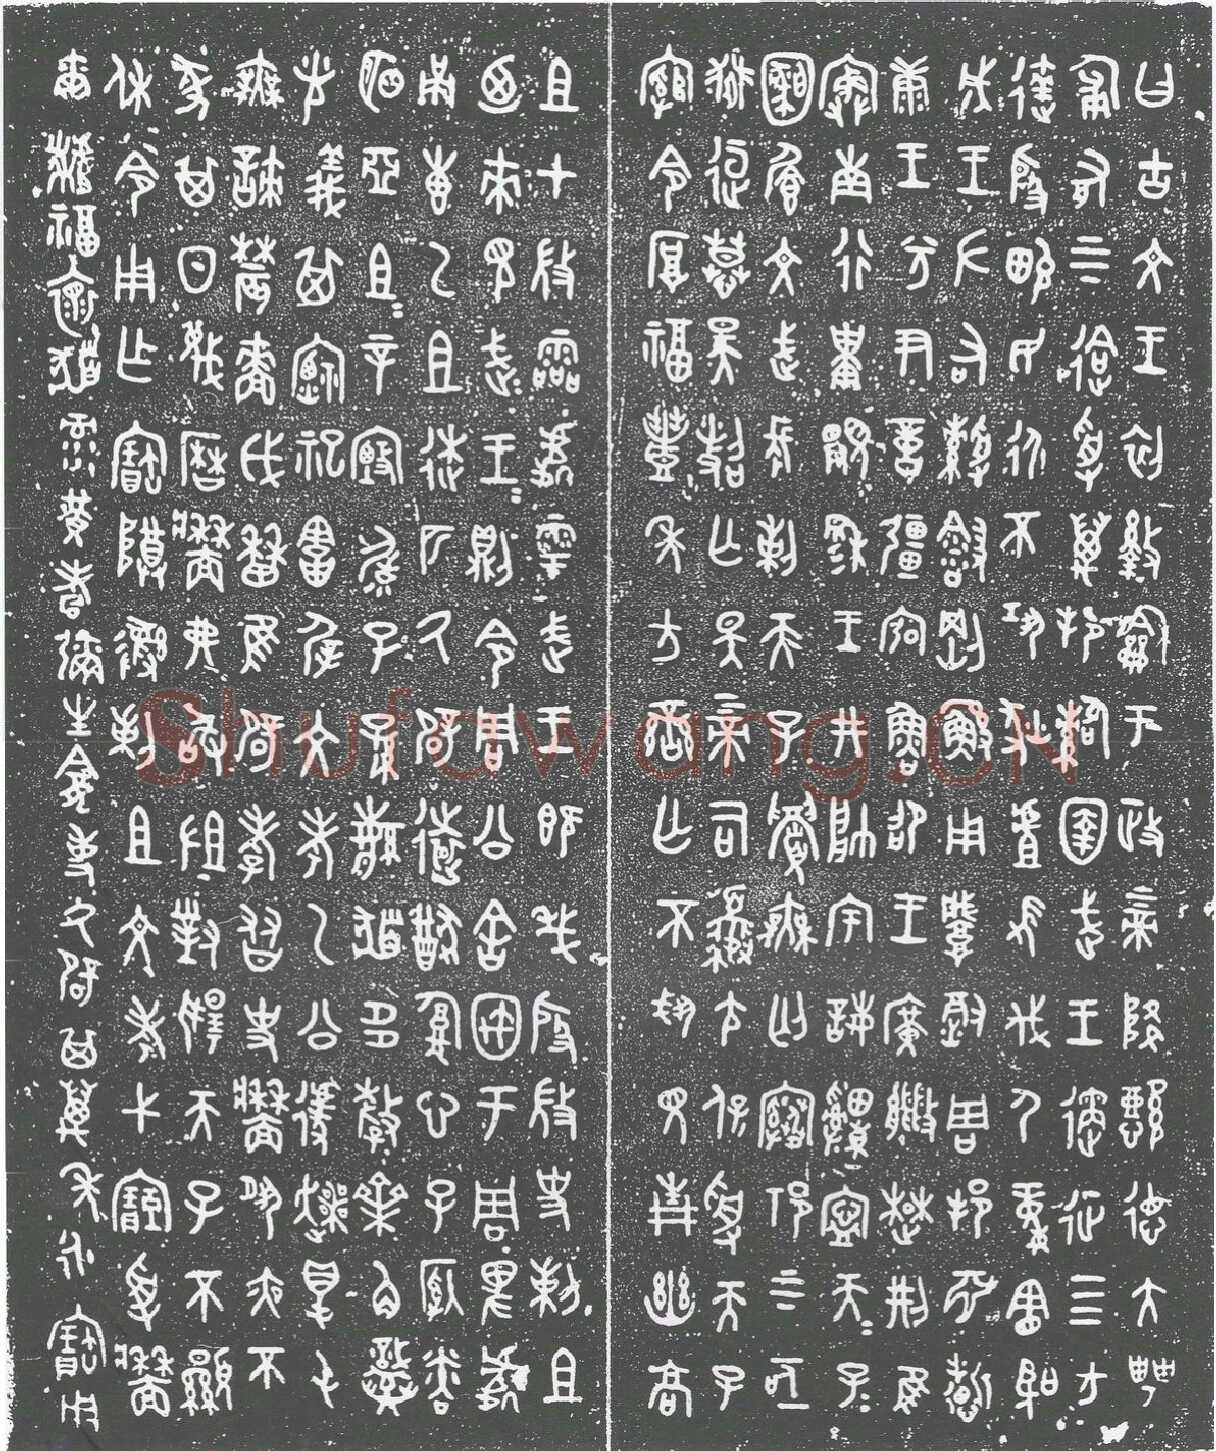 曰古文王初盭龢于政上帝降懿德大甹
匍有上下迨受萬邦圉武王遹征四方
達殷畯民永不巩狄虘伐尸童憲聖
成王左右剛鯀用肇徹周邦淵哲
康王兮尹億疆宖魯卲王廣楚荊隹
寏南行祗穆王井帥宇誨寧天子天子
文武長剌天子眉無匄祁上下
亟獄逗慕昊照亡斁上帝司夒尢保受天子
綰令厚福豐年方蠻亡不見青幽高
且才微靈處雩武王既殷微史剌且
廼來見武王武王則令周公舍宇于周卑處
甬惠乙且逑匹厥辟遠猷腹心子納粦
明亞且且辛毓子孫繁多釐齊角熾
光義其禋祀害遟文考乙公遽爽得屯
無諫農穡歷隹辟孝友史牆夙夜不
墜其日蔑歷牆弗敢沮對揚天子不顯
休令用乍寶尊彝剌且文考弋寶受牆
爾福懷祿黃耇彌生龕事厥辟其萬年永寶用
Shufawang.CN